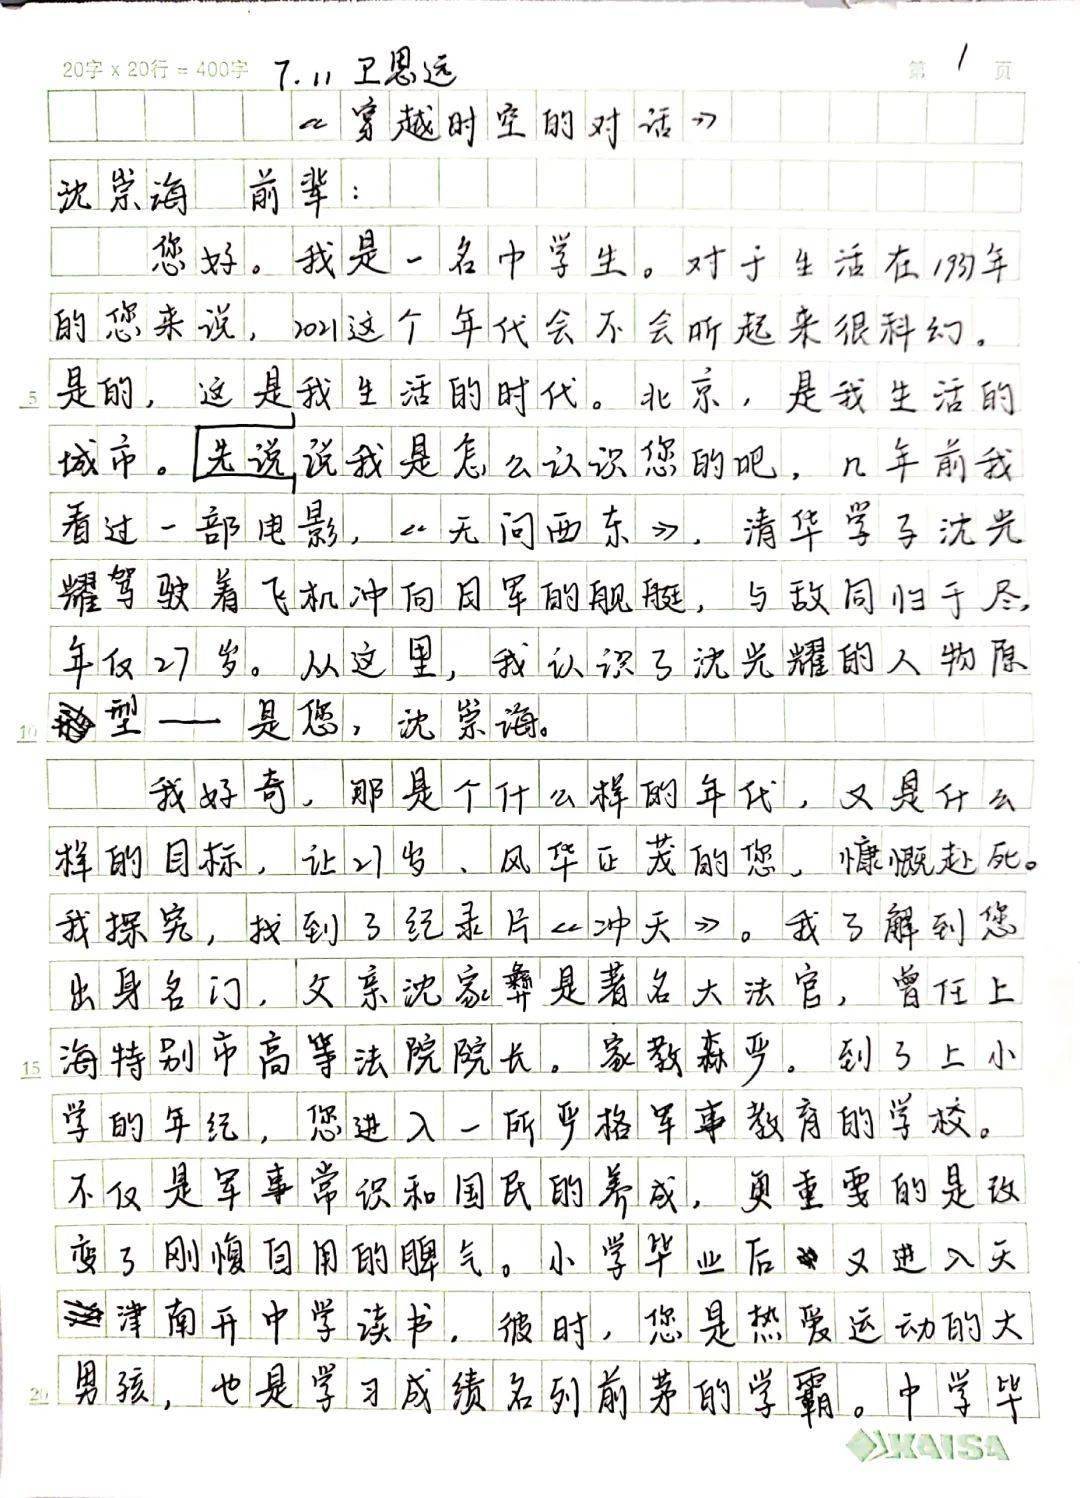 20字 x 20行 = 400字 7.11 卫恩远 第 1 页
《穿越时空的对话》
沈崇海 前辈：
您好。我是一名中学生。对于生活在1937年
的您来说，2021这个年代会不会听起来很科幻。
5 是的，这是我生活的时代。北京，是我生活的
城市。先说说我是怎么认识您的吧，几年前我
看过一部电影，《无问西东》，清华学子沈光
耀驾驶着飞机冲向日军的舰艇，与敌同归于尽，
年仅27岁。从这里，我认识了沈光耀的人物原
10 型——是您，沈崇海。
我好奇，那是个什么样的年代，又是什么
样的目标，让27岁、风华正茂的您，慷慨赴死。
我探究，找到了纪录片《冲天》。我了解到您
出身名门，父亲沈家彝是著名大法官，曾任上
15 海特别市高等法院院长。家教森严。到了上小
学的年纪，您进入一所严格军事教育的学校。
不仅是军事常识和国民的养成，更重要的是改
变了刚愎自用的脾气。小学毕业后又进入天
津南开中学读书，彼时，您是热爱运动的大
20 男孩，也是学习成绩名列前茅的学霸。中学毕
KAISA